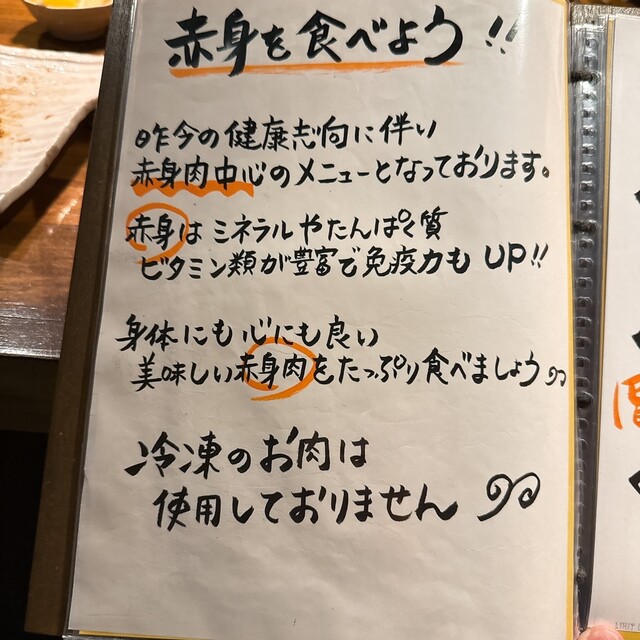 赤身を食べよう!!
昨今の健康志向に伴い
赤身肉中心のメニューとなっております。
赤身はミネラルやたんぱく質
ビタミン類が豊富で免疫力もUP!!
身体にも心にも良い
美味しい赤身肉をたっぷり食べましょう
冷凍のお肉は
使用しておりません